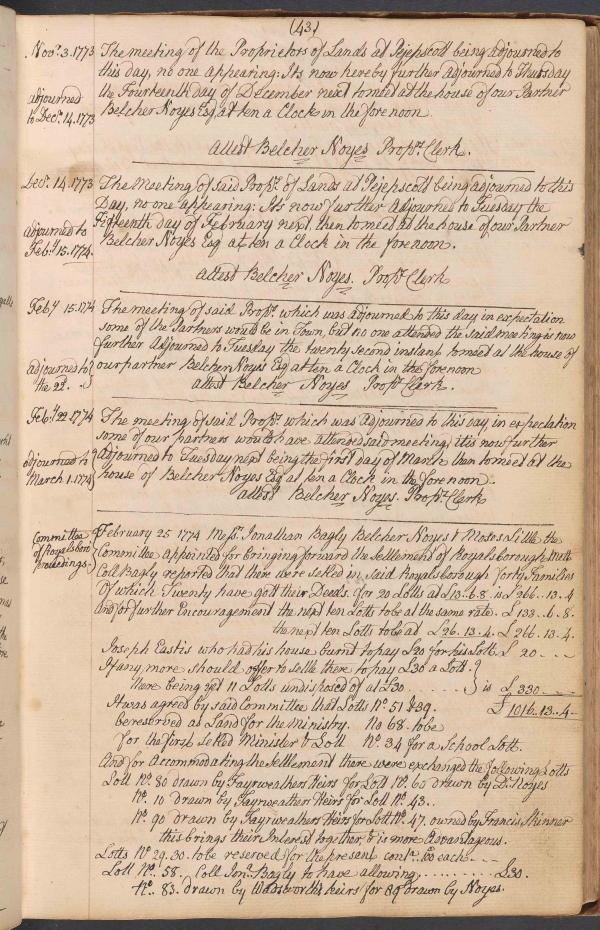 (43)
Novr. 3. 1773 The meeting of the Proprietors of Lands at Pejepscott being adjourned to
this day, no one appearing: Its now hereby further adjourned to Thursday
adjourned the Fourteenth day of December next to meet at the house of our Partner
to Decr. 14. 1773 Belcher Noyes Esq at ten a Clock in the forenoon
attest Belcher Noyes Propr. Clerk.
Decr. 14. 1773 The Meeting of said Propr. of Lands at Pejepscott being adjourned to this
Day, no one appearing: Its now further adjourned to Tuesday the
adjourned to Fifteenth day of February next, then to meet at the house of our Partner
Feby. 15. 1774. Belcher Noyes Esq at ten a Clock in the forenoon.
attest Belcher Noyes. Propr. Clerk
Feby 15. 1774 The meeting of said Propr. which was adjourned to this day in expectation
some of the Partners would be in Town, but no one attended the said meeting is now
further adjourned to Tuesday the twenty second instant to meet at the house of
adjourned to our partner Belcher Noyes Esq at ten a Clock in the forenoon
the 22d. attest Belcher Noyes Propr. Clerk.
Feby. 22 1774 The meeting of said Propr. which was adjourned to this day in expectation
some of our partners would have attended said meeting, it is now further
adjourned to adjourned to Tuesday next being the first day of March then to meet at the
March 1. 1774 house of Belcher Noyes Esq at ten a Clock in the forenoon.
attest Belcher Noyes. Propr. Clerk
Committee February 25 1774 Messr. Jonathan Bagly Belcher Noyes & Moses Little the
of Royalsboro Committee appointed for bringing forward the Settlement of Royalsborough mett
proceedings. Coll Bagly reported that there were setled in said Royalsborough forty Families
Of which Twenty have gott their Deeds. for 20 Lotts at £13..6..8. is £266..13..4
And for further Encouragement the next ten Lotts to be at the same rate. £133..6..8.
the next ten Lotts to be ad £26..13..4. £266..13..4.
Joseph Eastis who had his house burnt to pay £20 for his Lott £ 20
If any more should offer to settle there to pay £30 a Lott
there being yet 11 Lotts undisposed of at £30 is £330
It was agreed by said Committee that Lotts No. 51 & 39. £1016..13..4
be reserved as Land for the Ministry. No 68. to be
for the first setled Minister & Lott No. 34 for a School Lott.
And for accommodating the Settlement there were exchanged the following Lotts
Lott No. 80 drawn by Fayrweathers Heirs for Lott No. 60 drawn by Dr. Noyes
No. 10 drawn by Fayrweathers Heirs for Lott No. 43..
No. 90 drawn by Fayrweathers Heirs for Lott No. 47. owned by Francis Skinner
this brings their Interest together, & is more advantageous.
Lotts No. 29. 30. to be reserved for the present each
Lott No. 58. Coll Jonn. Bagly to have allowing £30.
No. 83. drawn by Wadsworths heirs for 89 drawn by Noyes.